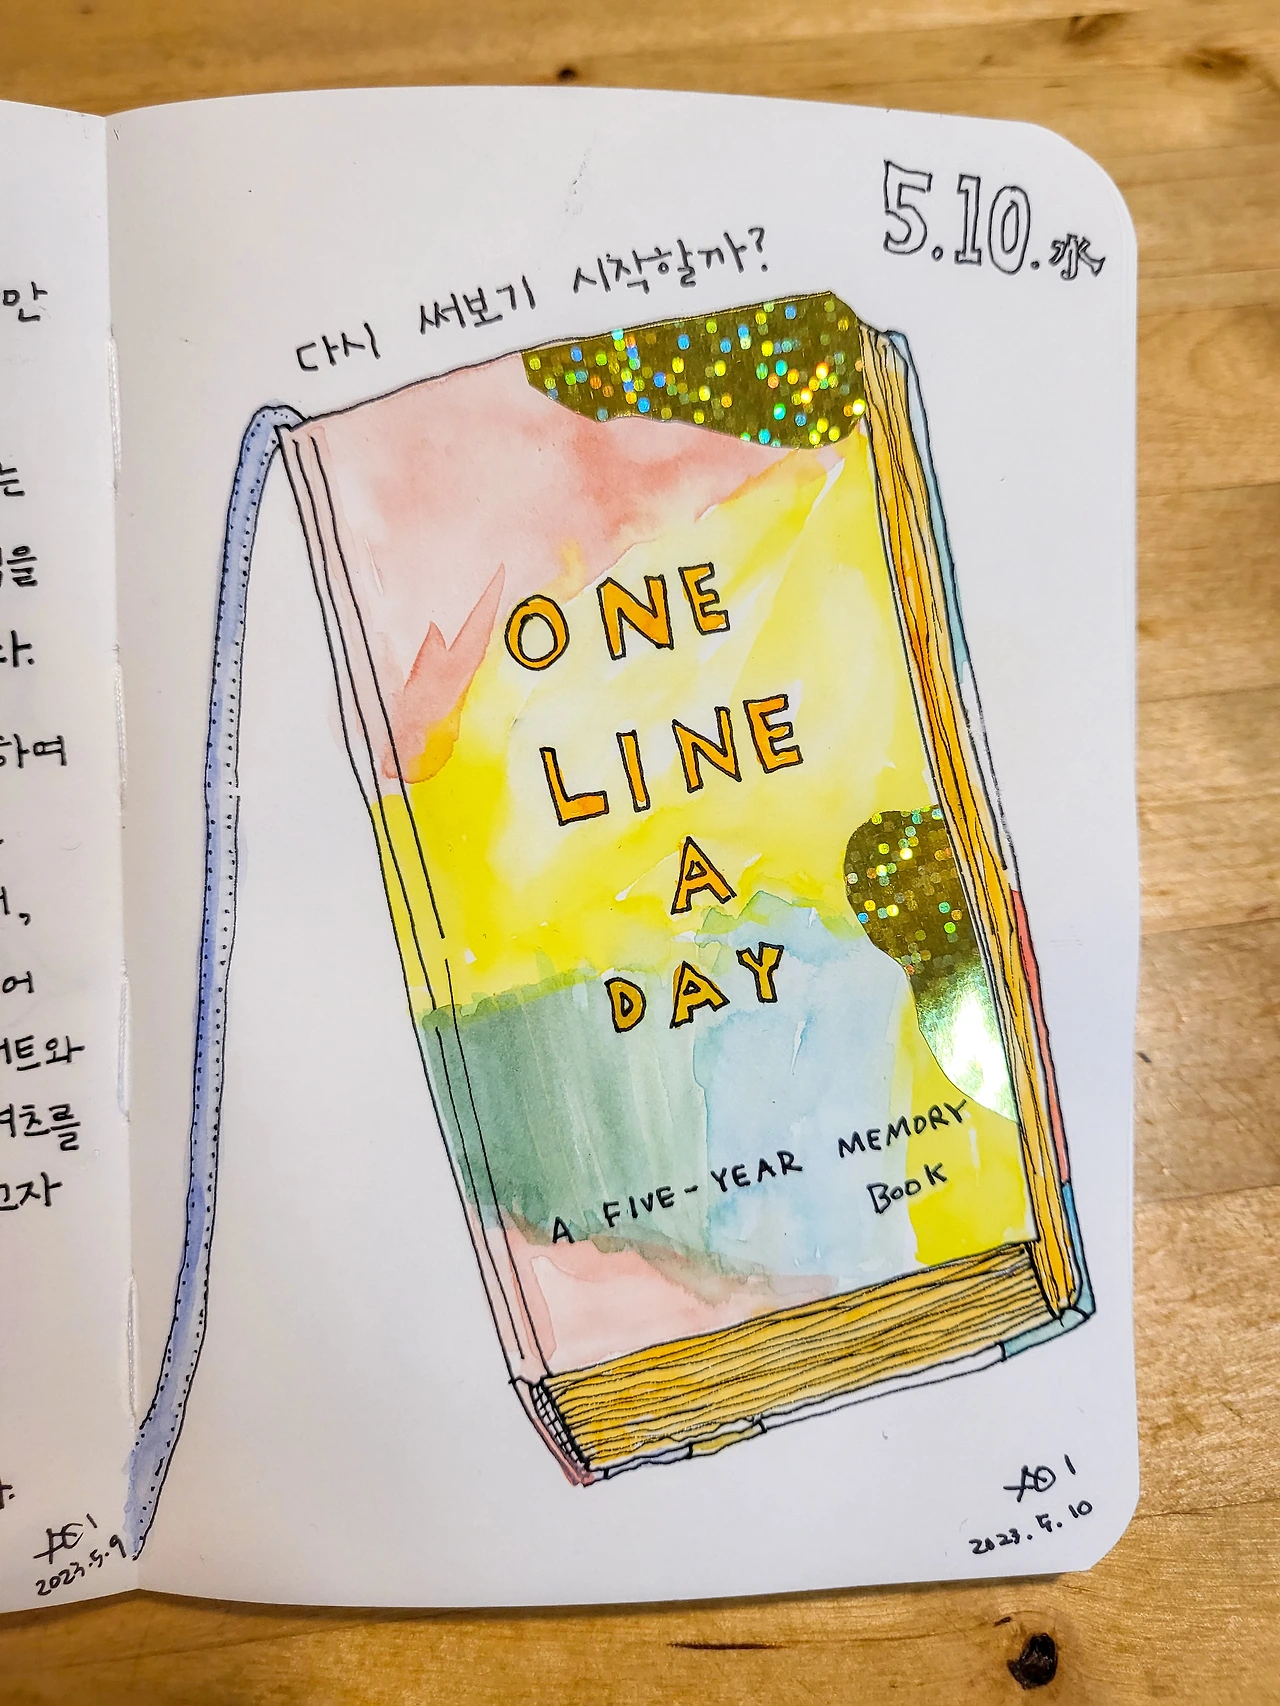 만
는
을
다.
하며
,
어
트와
초를
고자
2023.5.9
5.10.水
다시 써보기 시작할까?
ONE
LINE
A
DAY
A FIVE-YEAR MEMORY
BOOK
2023.5.10